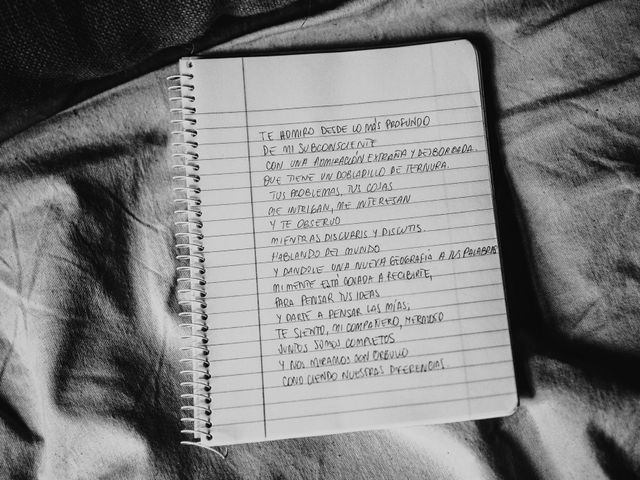 TE ADMIRO DESDE LO MÁS PROFUNDO
DE MI SUBCONSCIENTE
CON UNA ADMIRACIÓN EXTRAÑA Y DESBORDADA.
QUE TIENE UN DOBLADILLO DE TERNURA.
TUS PROBLEMAS, TUS COSAS
ME INTRIGAN, ME INTERESAN
Y TE OBSERVO
MIENTRAS DISCURRIS Y DISCUTIS.
HABLANDO DEL MUNDO
Y DANDOLE UNA NUEVA GEOGRAFIA A TUS PALABRAS
MI MENTE ESTÁ A RECIBIRTE,
PARA PENSAR TUS IDEAS
Y DARTE A PENSAR LAS MÍAS;
TE SIENTO, MI COMPAÑERO, HERMOSO
JUNTOS SOMOS COMPLETOS
Y NOS MIRAMOS CON ORGULLO
CONOCIENDO NUESTRAS DIFERENCIAS.